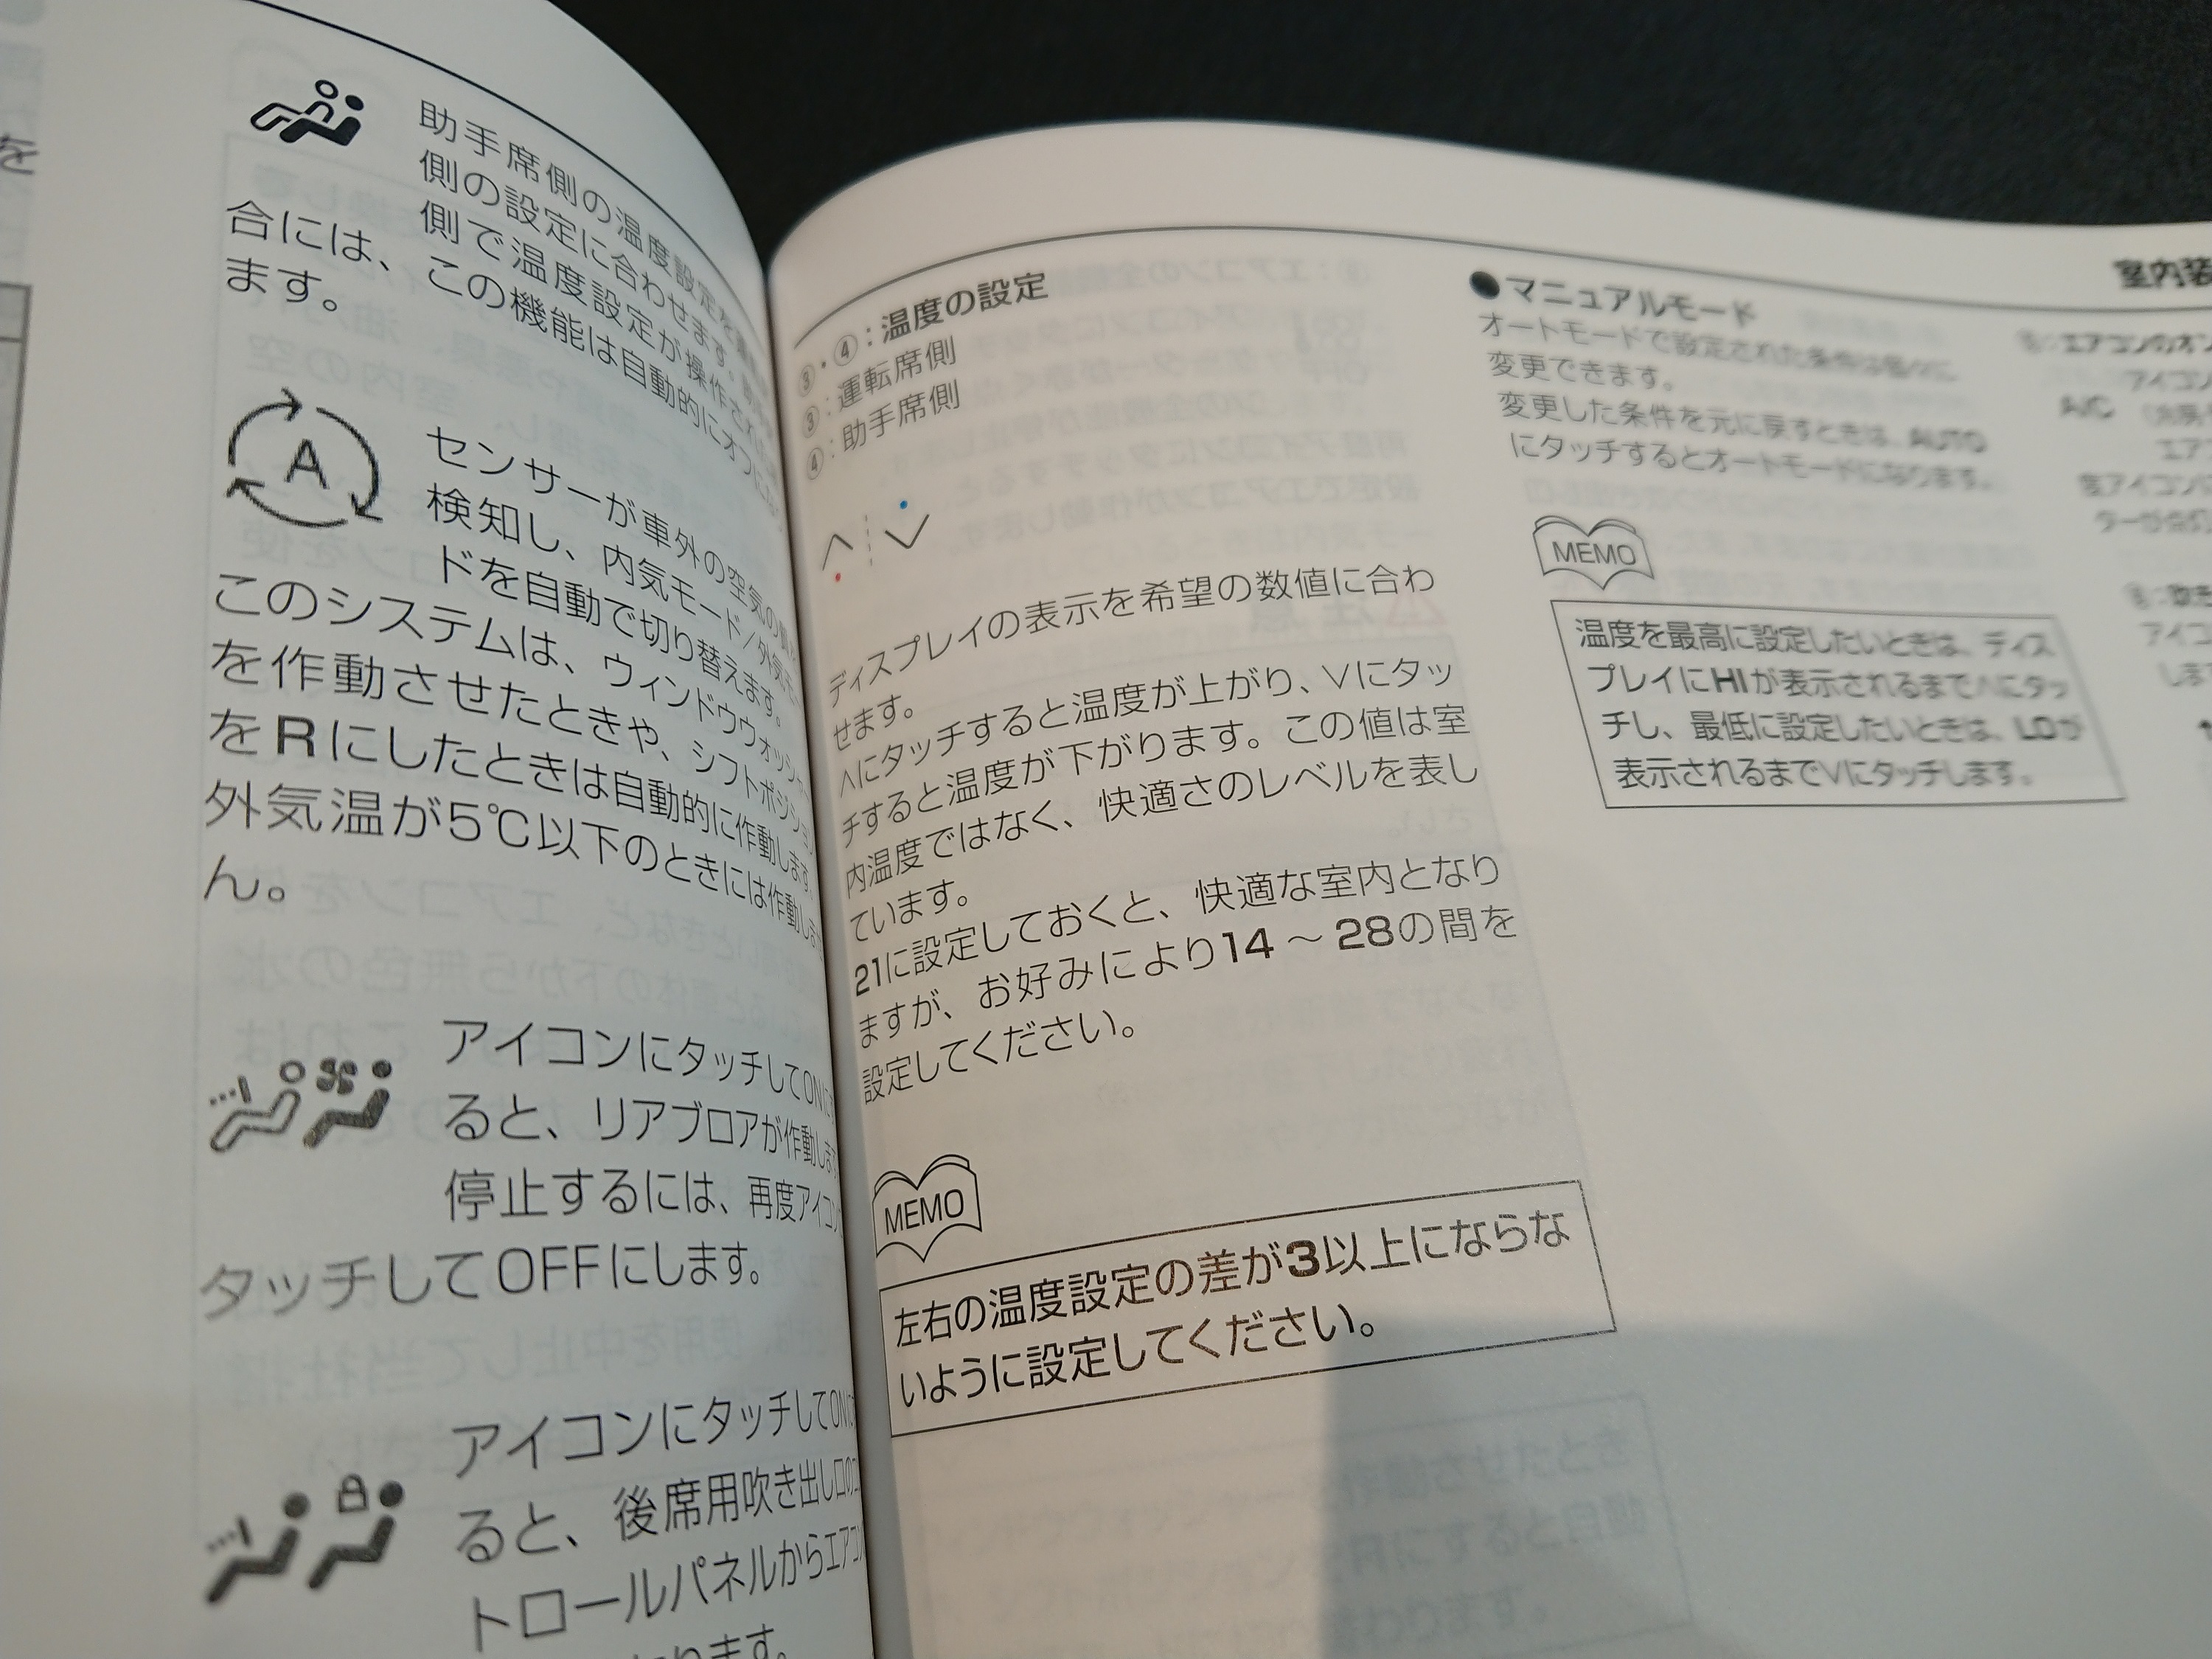 を
助手席側の温度設定を
側の設定に合わせます。
側で温度設定が操作された
合には、この機能は自動的にオフ
ます。
A
センサーが車外の空気の
検知し、内気モード/外気モ
ドを自動で切り替えます。
このシステムは、ウィンドウウォッシャ
を作動させたときや、シフトポジショ
をRにしたときは自動的に作動します。
外気温が5℃以下のときには作動しま
ん。
アイコンにタッチしてON
ると、リアブロアが作動しま
停止するには、再度アイコン
タッチしてOFFにします。
アイコンにタッチしてON
ると、後席用吹き出し口の
トロールパネルからエアコ
ります。
③・④：温度の設定
③：運転席側
④：助手席側
ディスプレイの表示を希望の数値に合わ
せます。
∧にタッチすると温度が上がり、∨にタッ
チすると温度が下がります。この値は室
内温度ではなく、快適さのレベルを表し
ています。
21に設定しておくと、快適な室内となり
ますが、お好みにより14 ～ 28の間を
設定してください。
MEMO
左右の温度設定の差が3以上にならな
いように設定してください。
室内装
●マニュアルモード
オートモードで設定された条件は
変更できます。
変更した条件を元に戻すときは、AUTO
にタッチするとオートモードになります。
MEMO
温度を最高に設定したいときは、ディス
プレイにHIが表示されるまで∧にタッ
チし、最低に設定したいときは、LOが
表示されるまで∨にタッチします。
エアコンのオン
アイコン
A/C
エア
アイコ
しま